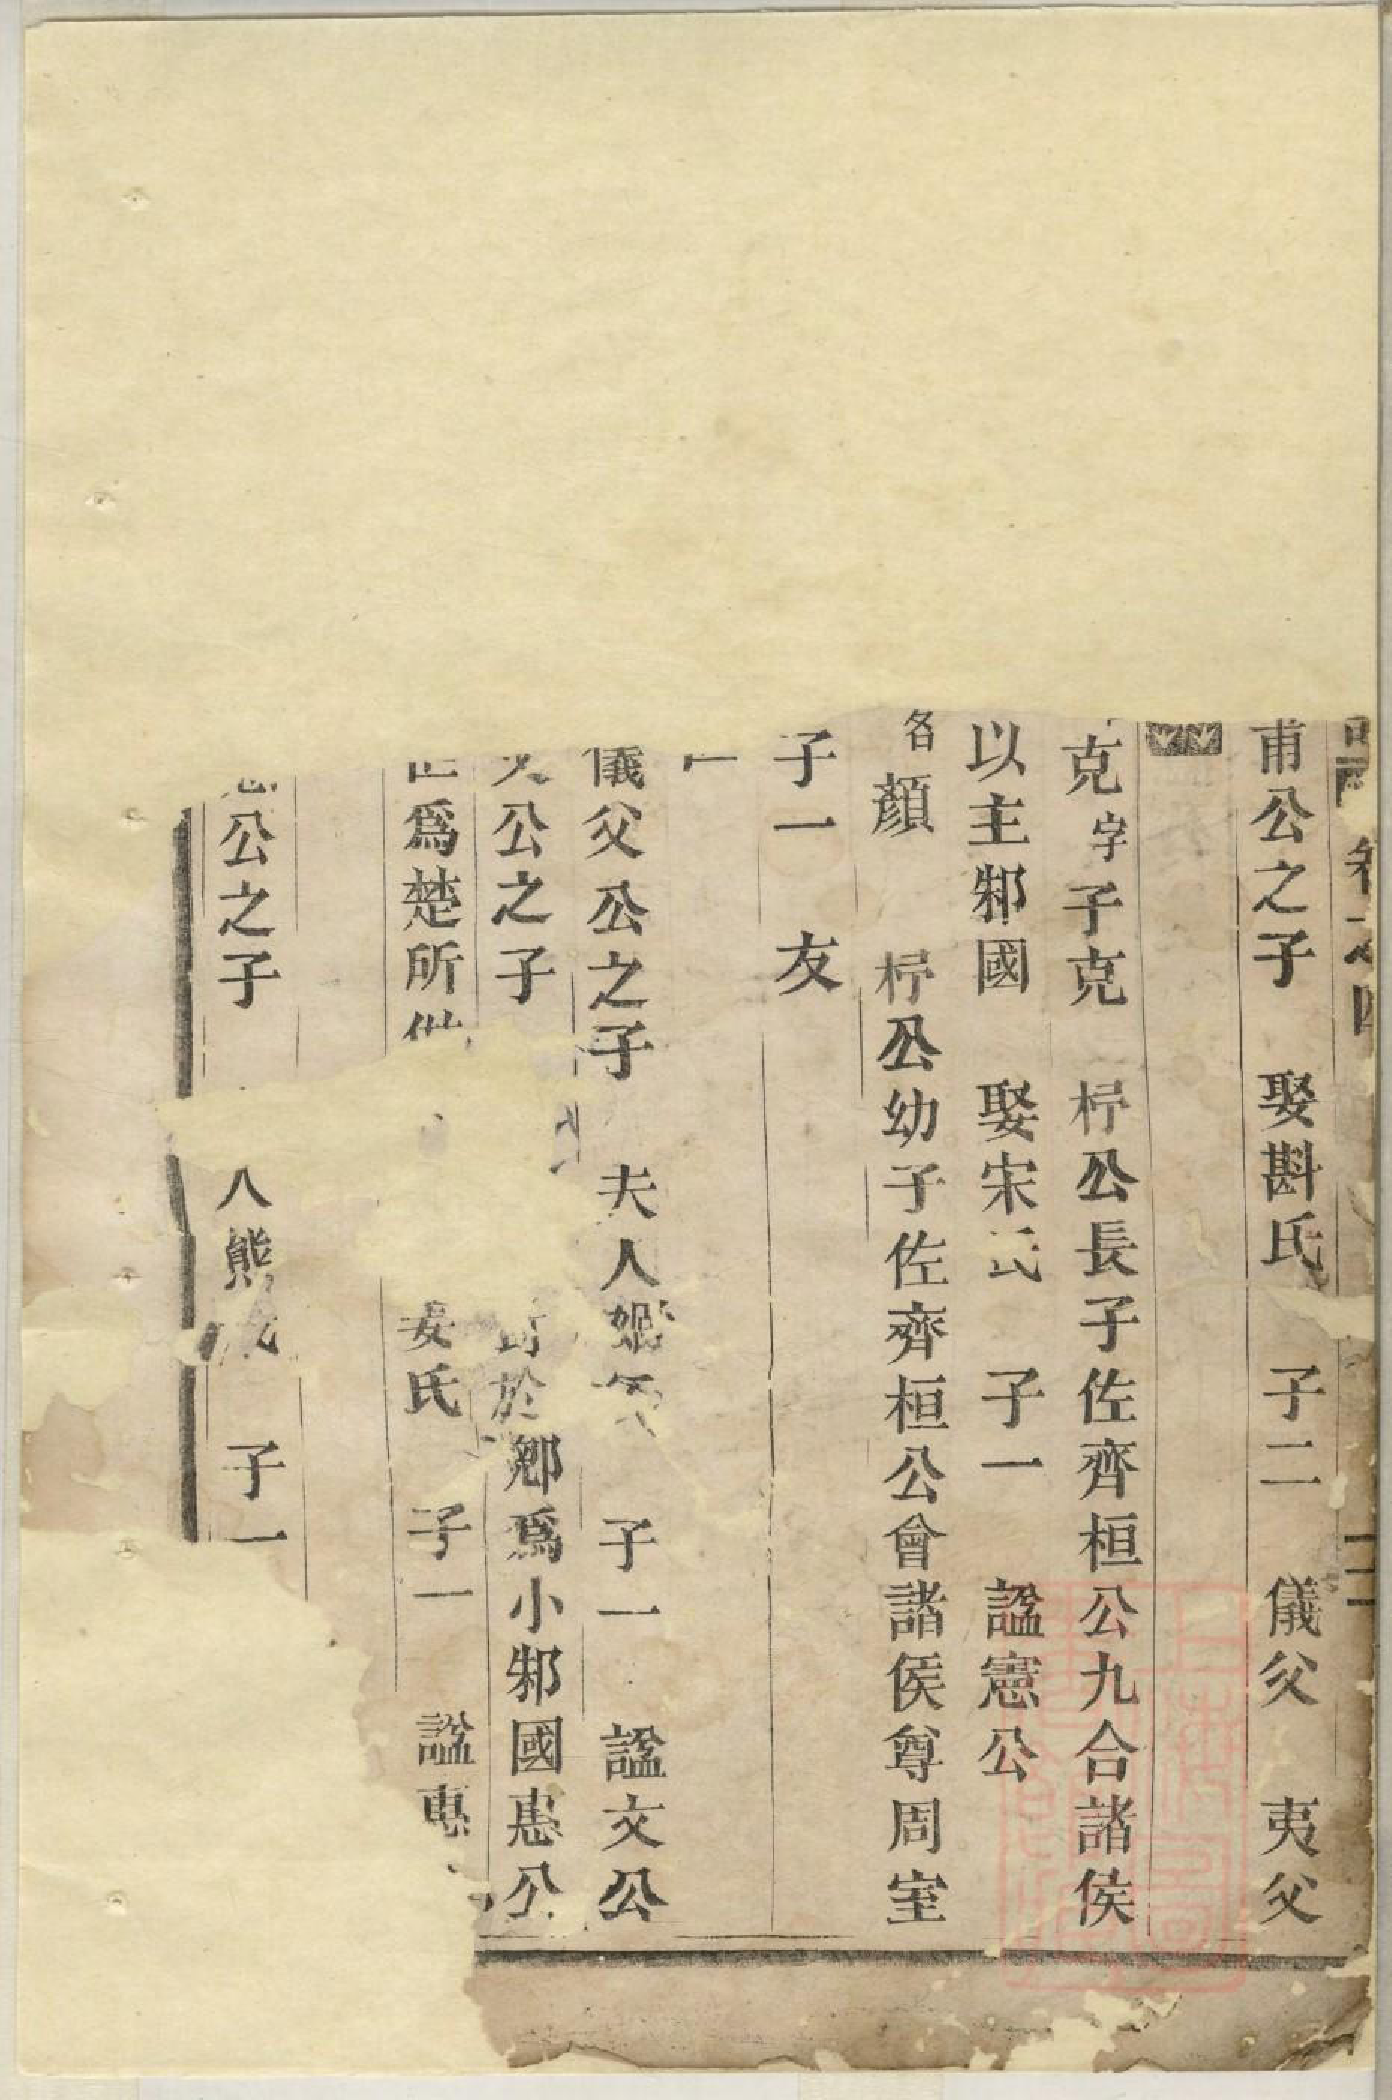 卷之四
甫公之子 娶斟氏 子二 儀父 夷父
克字子克 杼公長子佐齊桓公九合諸侯
以主邾國 娶宋氏 子一 諡憲公
名顏 杼公幼子佐齊桓公會諸侯尊周室
子一 友
儀父公之子 夫人 子一 諡文公
公之子 於郳爲小邾國惠公
爲楚所 氏 子一 諡惠
公之子 熊 子一